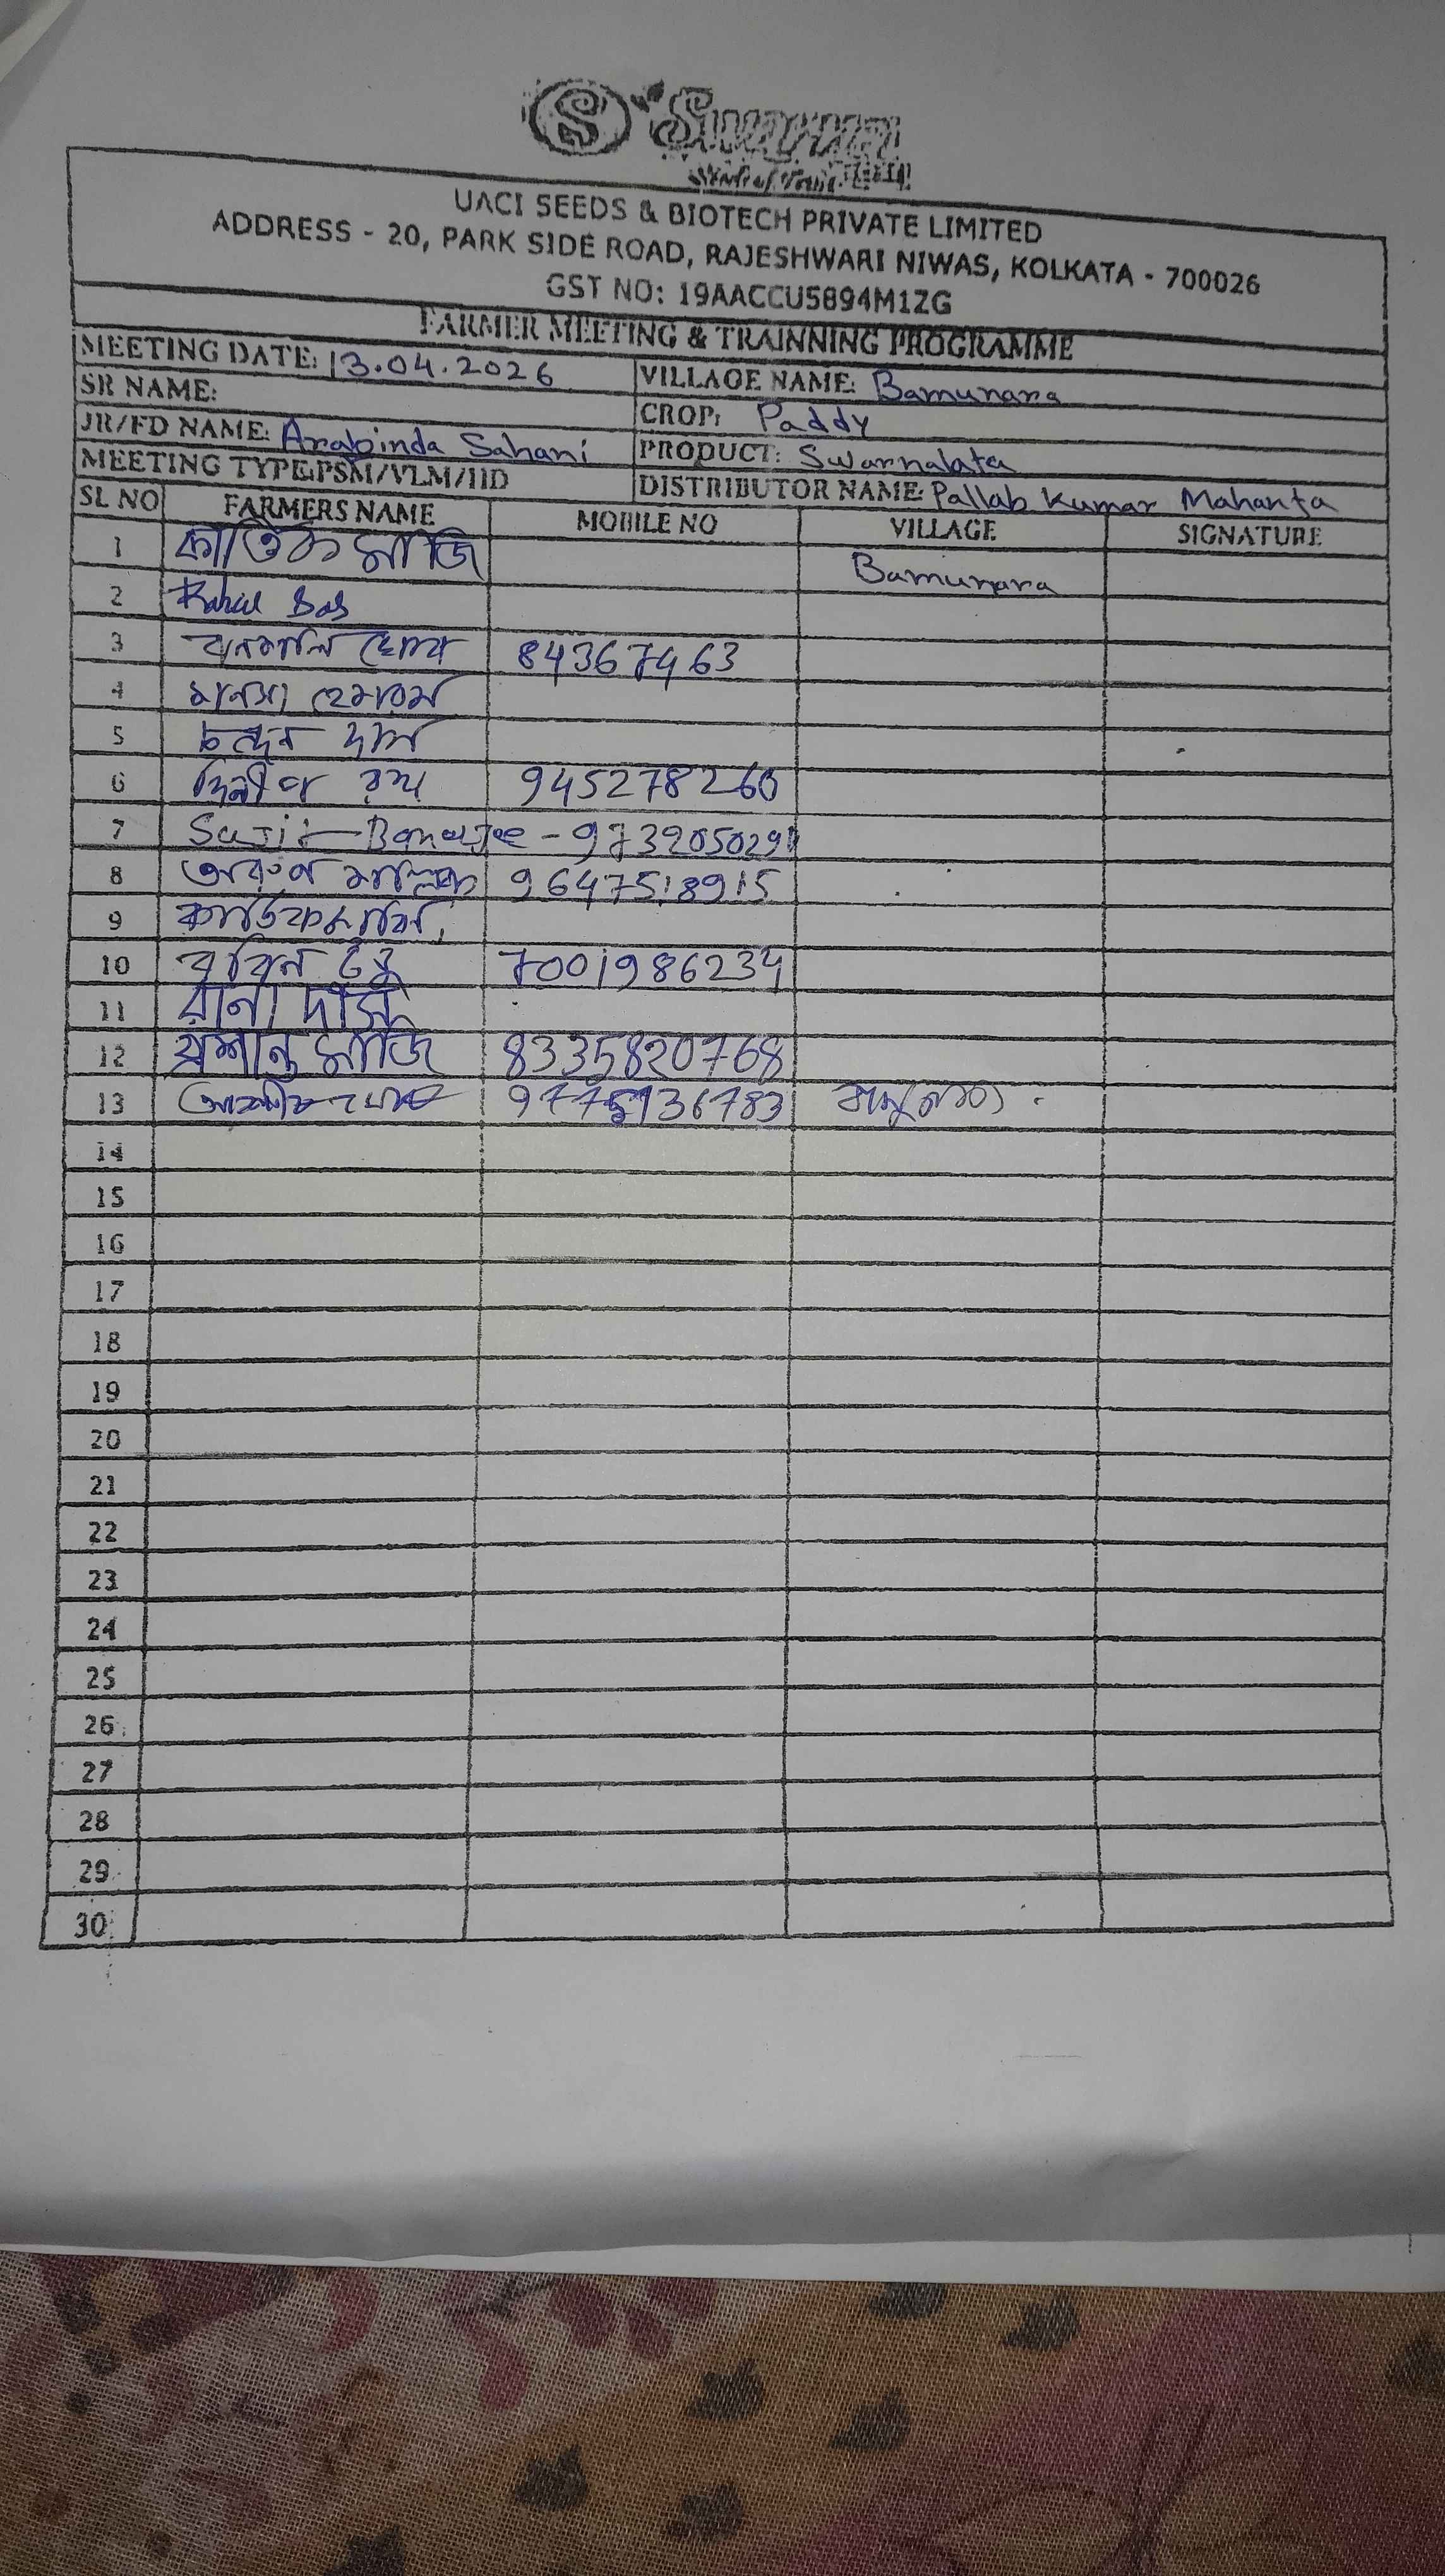 S Swarna
UACI SEEDS & BIOTECH PRIVATE LIMITED
ADDRESS - 20, PARK SIDE ROAD, RAJESHWARI NIWAS, KOLKATA - 700026
GST NO: 19AACCU5894M1ZG
FARMER MEETING & TRAINNING PROGRAMME
MEETING DATE: 13.04.2026 VILLAGE NAME: Bamunara
SR NAME: CROP: Paddy
JR/FD NAME: Arabinda Sahani PRODUCT: Swarnalata
MEETING TYPE:PSM/VLM/IID DISTRIBUTOR NAME: Pallab Kumar Mahanta
SL NO FARMERS NAME MOBILE NO VILLAGE SIGNATURE
1 কার্তিক মাজি Bamunara
2 Rahul Das
3 বনমালি ঘোষ 84367463
4 মনসা হেমব্রম
5 চন্দন দাস
6 দিলীপ রায় 945278260
7 Sujit Banerjee - 9732050291
8 অরূপ মল্লিক 9647518915
9
10 রবিন টুডু 7001986234
11 রানা দাস
12 প্রশান্ত মাজি 8335820768
13 আশীষ ঘোষ
14
15
16
17
18
19
20
21
22
23
24
25
26
27
28
29
30